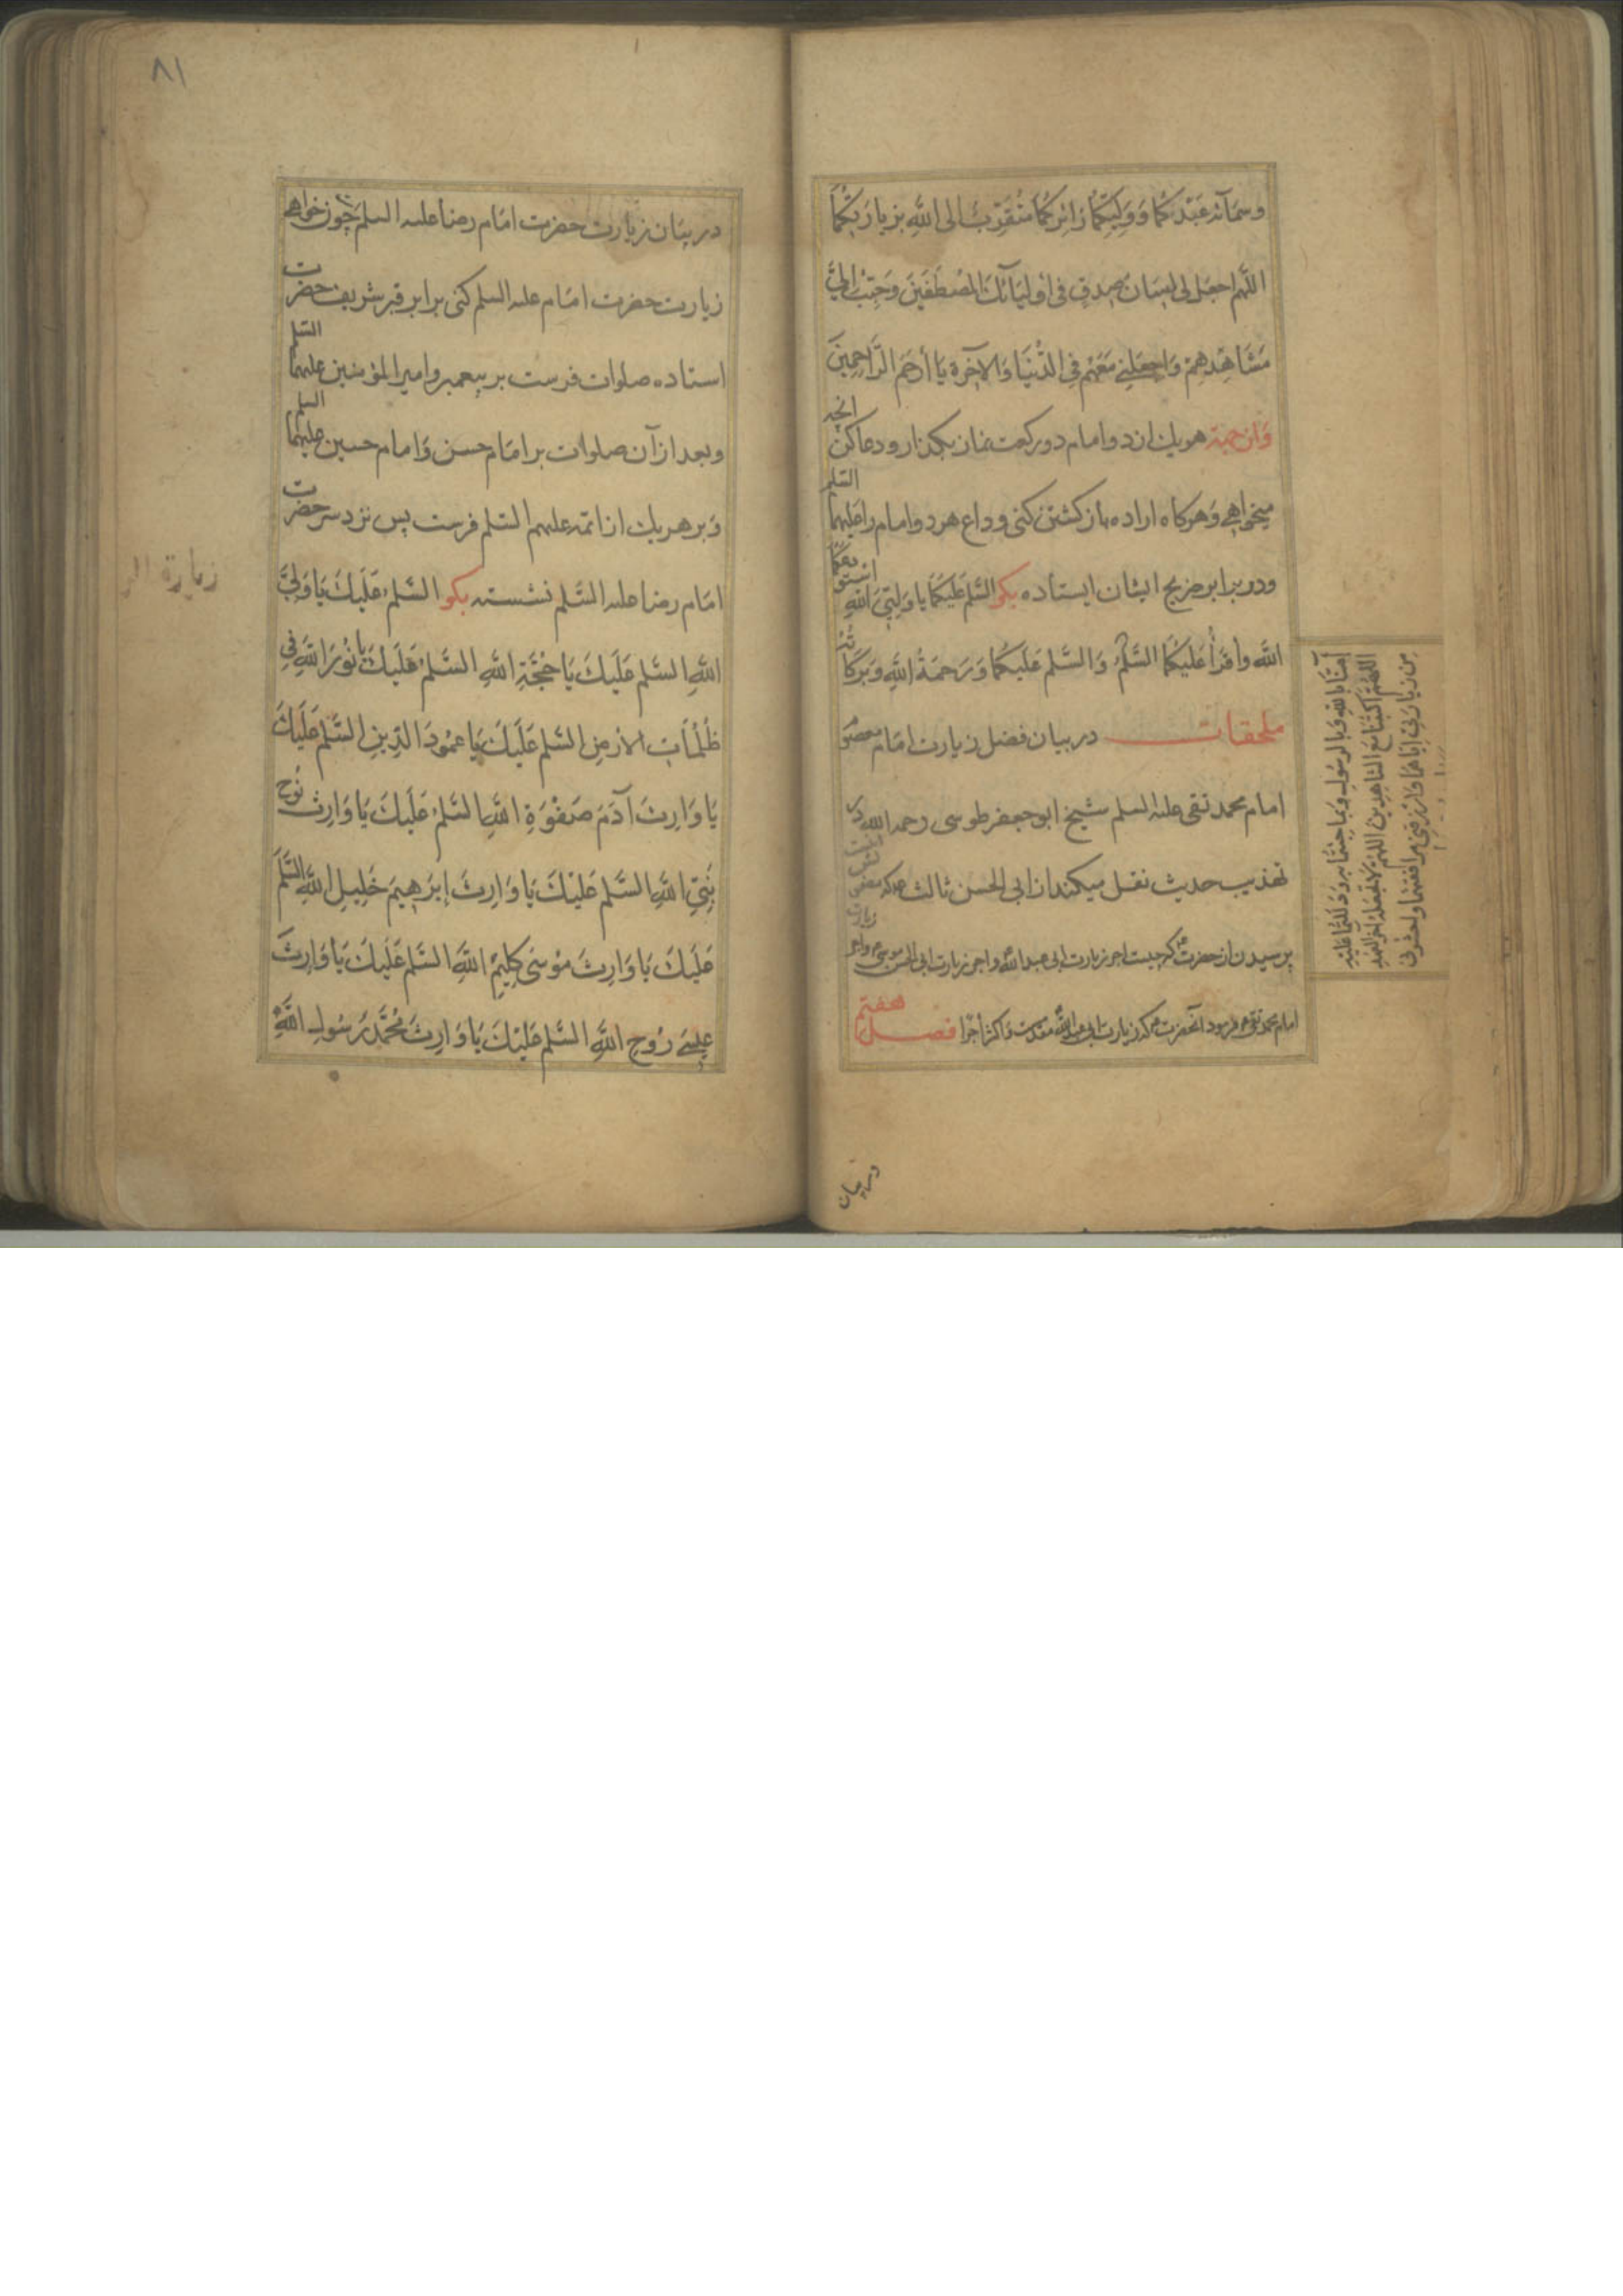 وسمائه عبدكما ووليكما زائركما متقرب الى الله بزيارتكما
اللهم اجعل لى لسان صدق فى اوليائك المصطفين وحبب الىّ
مشاهدهم واجعلني معهم فى الدنيا والآخرة يا أرحم الراحمين
هر يك از دو امام دو ركعت نماز بگذار و دعا كن انچه
ميخواهي و هركاه اراده باز كشتن كنى وداع هر دو امام را عليهما السلم
و در برابر ضريح ايشان ايستاده بكو السلم عليكما يا وليّى الله استودعكما
الله واقرأ عليكما السلم والسلم عليكما ورحمة الله وبركاته
ملحقات در بيان فضل زيارت امام معصوم
امام محمد تقى عليه السلم شيخ ابو جعفر طوسى رحمه الله در
تهذيب حديث نقل ميكند از ابى الحسن ثالث كه
پرسيدن از حضرت كه چيست اجر زيارت ابى عبد الله و اجر زيارت ابى الحسن موسى و اجر زيارت
امام محمد تقى فرمود آنحضرت كه زيارت ابى عبد الله مقدمست و اكثر أجرا فصل هفتم
آمنّا بالله وبالرسول وبما جئتما به ودللتما عليه
اللهم اكتبنا مع الشاهدين اللهم لا تجعله آخر العهد
من زيارتى اياهما وارزقنى مرافقتهما واحشرنى
در بيان
٨١
در بيان زيارت حضرت امام رضا عليه السلم چون خواهى
زيارت حضرت امام عليه السلم كنى برابر قبر شريف حضرت
استاده صلوات فرست بر پيغمبر و امير المؤمنين عليهما السلم
و بعد از آن صلوات بر امام حسن و امام حسين عليهما السلم
و بر هر يك از ائمه عليهم السلم فرست پس نزد سر حضرت
امام رضا عليه السلم نشسته بكو السلم عليك يا ولىّ
الله السلم عليك يا حجة الله السلم عليك يا نور الله فى
ظلمات الارض السلم عليك يا عمود الدين السلم عليك
يا وارث آدم صفوة الله السلم عليك يا وارث نوح
نبىّ الله السلم عليك يا وارث إبرهيم خليل الله السلم
عليك يا وارث موسى كليم الله السلم عليك يا وارث
عيسى روح الله السلم عليك يا وارث محمد رسول الله
زيارة